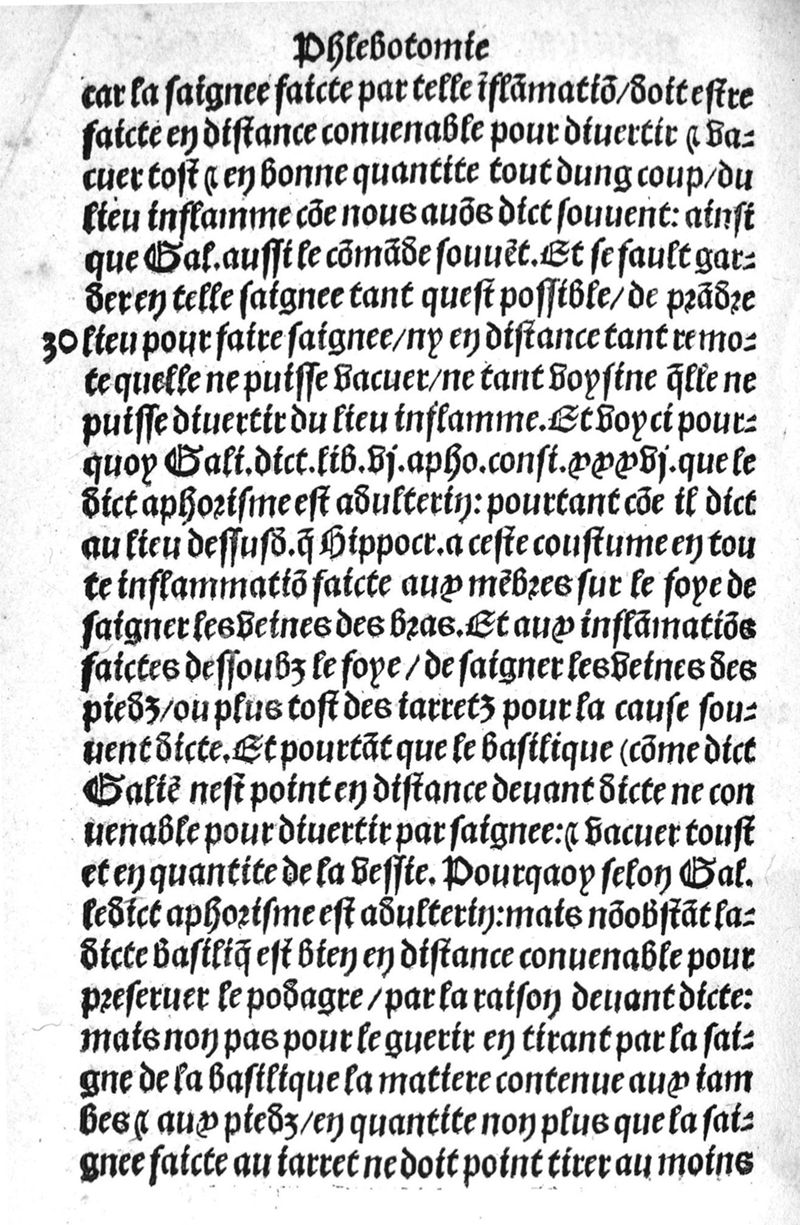 Phlebotomie
car la saignee faicte par telle īflāmatiō/doit estre
faicte en distance conuenable pour diuertir ⁊ va⸗
cuer tost ⁊ en bonne quantite tout dung coup/du
lieu inflamme cōe nous auōs dict souuent: ainsi
que Gal.aussi le cōmāde souuēt.Et se fault gar⸗
der en telle saignee tant quest possible/ de prādre
30 lieu pour faire saignee/ny en distance tant remo⸗
te quelle ne puisse vacuer/ne tant voysine q̄lle ne
puisse diuertir du lieu inflamme.Et voyci pour⸗
quoy Gali.dict.lib.vj.apho.consi.xxxvj.que le
dict aphorisme est adulterin: pourtant cōe il dict
au lieu dessusd.q̄ Hippocr.a ceste coustume en tou
te inflammatiō faicte aux mēbres sur le foye de
saigner les veines des bras.Et aux inflāmatiōs
faictes dessoubz le foye / de saigner les veines des
piedz/ou plus tost des iarretz pour la cause sou⸗
uent dicte.Et pourtāt que le basilique (cōme dict
Galiē nest point en distance deuant dicte ne con
uenable pour diuertir par saignee:⁊ vacuer toust
et en quantite de la vessie. Pourqaoy selon Gal.
ledict aphorisme est adulterin:mais nōobstāt la⸗
dicte basiliq̄ est bien en distance conuenable pour
preseruer le podagre / par la raison deuant dicte:
mais non pas pour le guerir en tirant par la sai⸗
gne de la basilique la matiere contenue aux iam
bes ⁊ aux piedz/en quantite non plus que la sai⸗
gnee faicte au iarret ne doit point tirer au moins